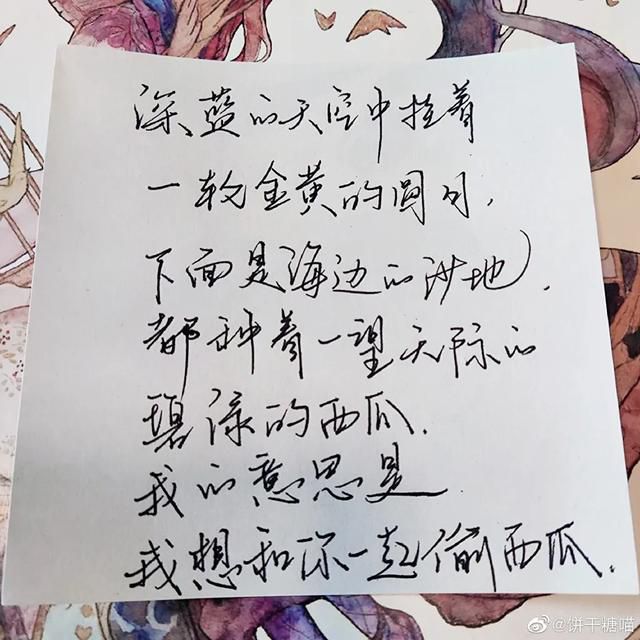 深蓝的天空中挂着
一轮金黄的圆月，
下面是海边的沙地，
都种着一望无际的
碧绿的西瓜，
我的意思是
我想和你一起偷西瓜。
@饼干糖喵